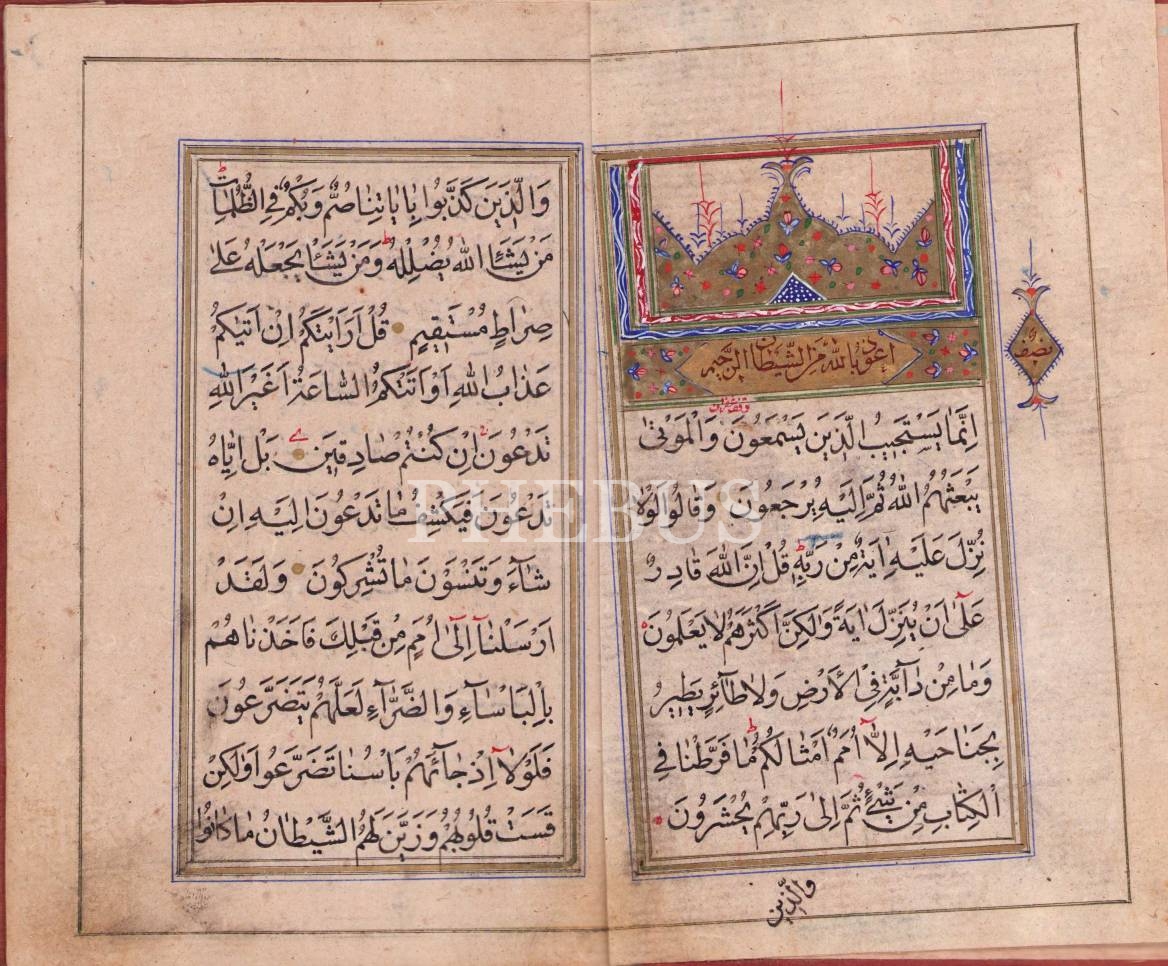 اعوذ بالله من الشيطان الرجيم
نصف
وقف غفران
اِنَّمَا يَسْتَجِيبُ الَّذِينَ يَسْمَعُونَ وَالْمَوْتىٰ
يَبْعَثُهُمُ اللهُ ثُمَّ اِلَيْهِ يُرْجَعُونَ وَقَالُوا لَوْلَا
نُزِّلَ عَلَيْهِ اٰيَةٌ مِنْ رَبِّهٖ قُلْ اِنَّ اللهَ قَادِرٌ
عَلٰى اَنْ يُنَزِّلَ اٰيَةً وَلٰكِنَّ اَكْثَرَهُمْ لَا يَعْلَمُونَ
وَمَا مِنْ دَآبَّةٍ فِى الْاَرْضِ وَلَا طَآئِرٍ يَطِيرُ
بِجَنَاحَيْهِ اِلَّآ اُمَمٌ اَمْثَالُكُمْ مَا فَرَّطْنَا فِى
الْكِتَابِ مِنْ شَىْءٍ ثُمَّ اِلٰى رَبِّهِمْ يُحْشَرُونَ
والذين
وَالَّذِينَ كَذَّبُوا بِاٰيَاتِنَا صُمٌّ وَبُكْمٌ فِى الظُّلُمَاتِ
مَنْ يَشَاِ اللهُ يُضْلِلْهُ وَمَنْ يَشَأْ يَجْعَلْهُ عَلٰى
صِرَاطٍ مُسْتَقِيمٍ قُلْ اَرَاَيْتَكُمْ اِنْ اَتٰيكُمْ
عَذَابُ اللهِ اَوْ اَتَتْكُمُ السَّاعَةُ اَغَيْرَ اللهِ
تَدْعُونَ اِنْ كُنْتُمْ صَادِقِينَ بَلْ اِيَّاهُ
تَدْعُونَ فَيَكْشِفُ مَا تَدْعُونَ اِلَيْهِ اِنْ
شَآءَ وَتَنْسَوْنَ مَا تُشْرِكُونَ وَلَقَدْ
اَرْسَلْنَآ اِلٰٓى اُمَمٍ مِنْ قَبْلِكَ فَاَخَذْنَاهُمْ
بِالْبَاْسَآءِ وَالضَّرَّآءِ لَعَلَّهُمْ يَتَضَرَّعُونَ
فَلَوْلَآ اِذْ جَآئَهُمْ بَاْسُنَا تَضَرَّعُوا وَلٰكِنْ
قَسَتْ قُلُوبُهُمْ وَزَيَّنَ لَهُمُ الشَّيْطَانُ مَا كَانُوا
PHEBUS